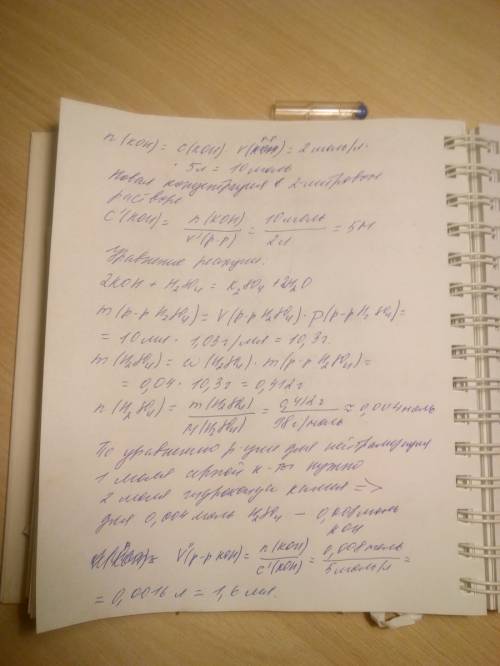 n(KOH) = c(KOH) · V(р-р) = 2 моль/л ·
· 5л = 10 моль
Новая концентрация в 2-литровом
растворе
C'(KOH) = n(KOH) / V'(р-р) = 10 моль / 2л = 5М
Уравнение реакции:
2KOH + H₂SO₄ = K₂SO₄ + 2H₂O
m(р-р H₂SO₄) = V(р-р H₂SO₄) · ρ(р-р H₂SO₄) =
= 10 мл · 1,03 г/мл = 10,3г
m(H₂SO₄) = ω(H₂SO₄) · m(р-р H₂SO₄) =
= 0,04 · 10,3г = 0,412г
n(H₂SO₄) = m(H₂SO₄) / M(H₂SO₄) = 0,412г / 98г/моль ≈ 0,004 моль
По уравнению р-ции для нейтрализации
1 моля серной к-ты нужно
2 моля гидроксида калия =>
для 0,004 моль H₂SO₄ – 0,008 моль
KOH
V''(р-р KOH) = n(KOH) / c'(KOH) = 0,008 моль / 5 моль/л =
= 0,0016 л = 1,6 мл.